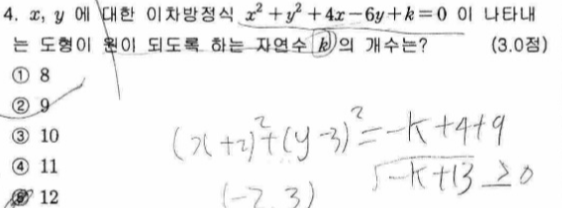 4. x, y 에 대한 이차방정식 x² + y² + 4x - 6y + k = 0 이 나타내
는 도형이 원이 되도록 하는 자연수 k의 개수는? (3.0점)
① 8
② 9
③ 10
④ 11
⑤ 12
(x+2)²+(y-3)²=-k+4+9
√-k+13 ≥0
(-2, 3)